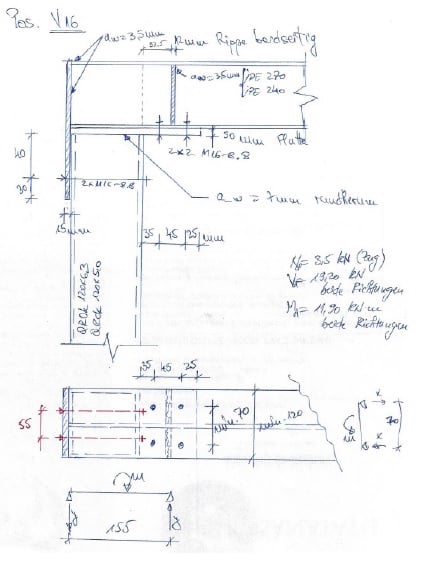 Pos. V16
aw=3,5mm
57.5
12mm Rippe beidseitig
aw=3,5mm
IPE 270
IPE 240
50 mm Platte
2x2 M16-8.8
40
30
2xM16-8.8
aw = 7mm rundherum
15mm
35 45 25 mm
QRCK 120x6,3
QRCK 120x5,0
N= 3,5 kN (Zug)
V= 19,20 kN
beide Richtungen
M= 11,90 kN m
beide Richtungen
35 45 25
55
min. 70
min. 120
x
M
70
x
M
155